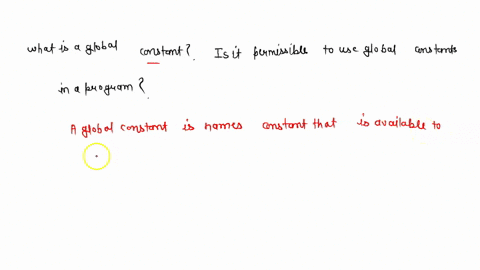 what is a global constant? Is it permissible to use global constants
in a program?
A global constant is names constant that is available to